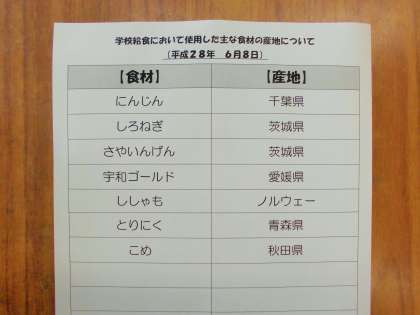 学校給食において使用した主な食材の産地について
（平成２８年　６月８日）
【食材】　【産地】
にんじん　千葉県
しろねぎ　茨城県
さやいんげん　茨城県
宇和ゴールド　愛媛県
ししゃも　ノルウェー
とりにく　青森県
こめ　秋田県